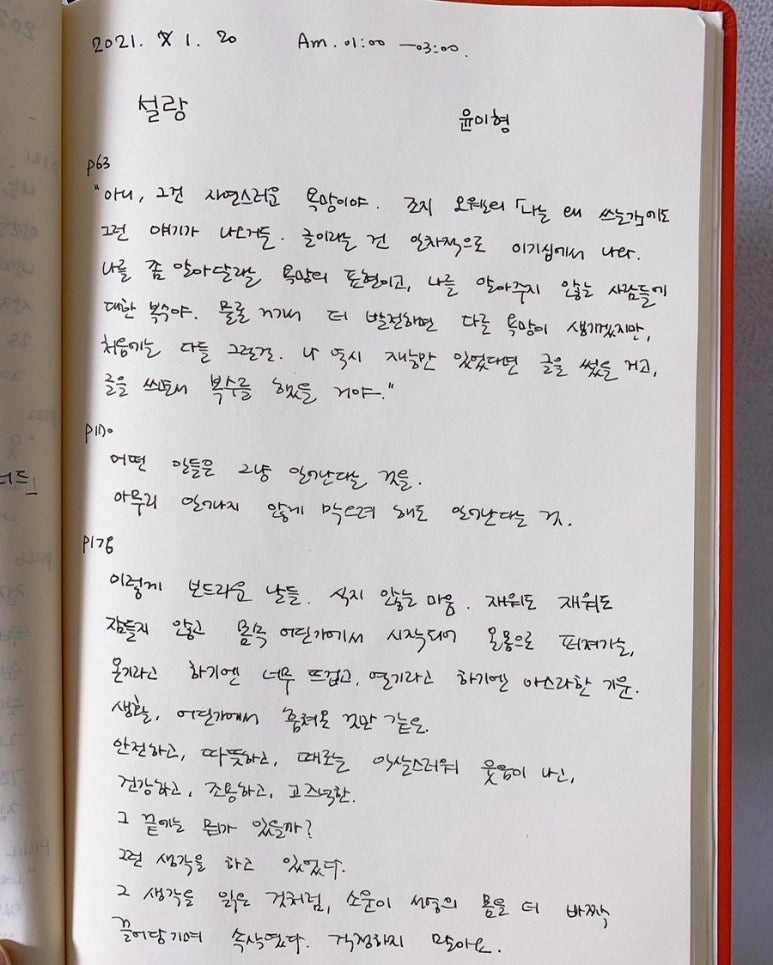 2021. 1. 20 Am. 01:00 -03:00.
설랑 윤이형
p63
"아니, 그건 자연스러운 욕망이야. 조지 오웰의 「나는 왜 쓰는가」에도
그런 얘기가 나오거든. 글이라는 건 일차적으로 이기심에서 나와.
나를 좀 알아달라는 욕망의 표현이고, 나를 알아주지 않는 사람들에
대한 복수야. 물론 거기서 더 발전하면 다른 욕망이 생기겠지만,
처음에는 다들 그런걸. 나 역시 재능만 있었다면 글을 썼을 거고,
글을 쓰면서 복수를 했을 거야."
p170
어떤 일들은 그냥 일어난다는 것을.
아무리 일어나지 않게 막으려 해도 일어난다는 것.
p178
이렇게 보드라운 날들. 식지 않는 마음. 재워도 재워도
잠들지 않고 몸속 어딘가에서 시작되어 온몸으로 퍼져가는,
온기라고 하기엔 너무 뜨겁고, 열기라고 하기엔 아스라한 기운.
생활, 어딘가에서 훔쳐온 것만 같은.
안전하고, 따뜻하고, 때로는 익살스러워 웃음이 나고,
건강하고, 조용하고, 고즈넉한.
그 끝에는 뭐가 있을까?
그런 생각을 하고 있었다.
그 생각을 읽은 것처럼, 소운이 서영의 몸을 더 바짝
끌어당기며 속삭였다. 걱정하지 말아요.